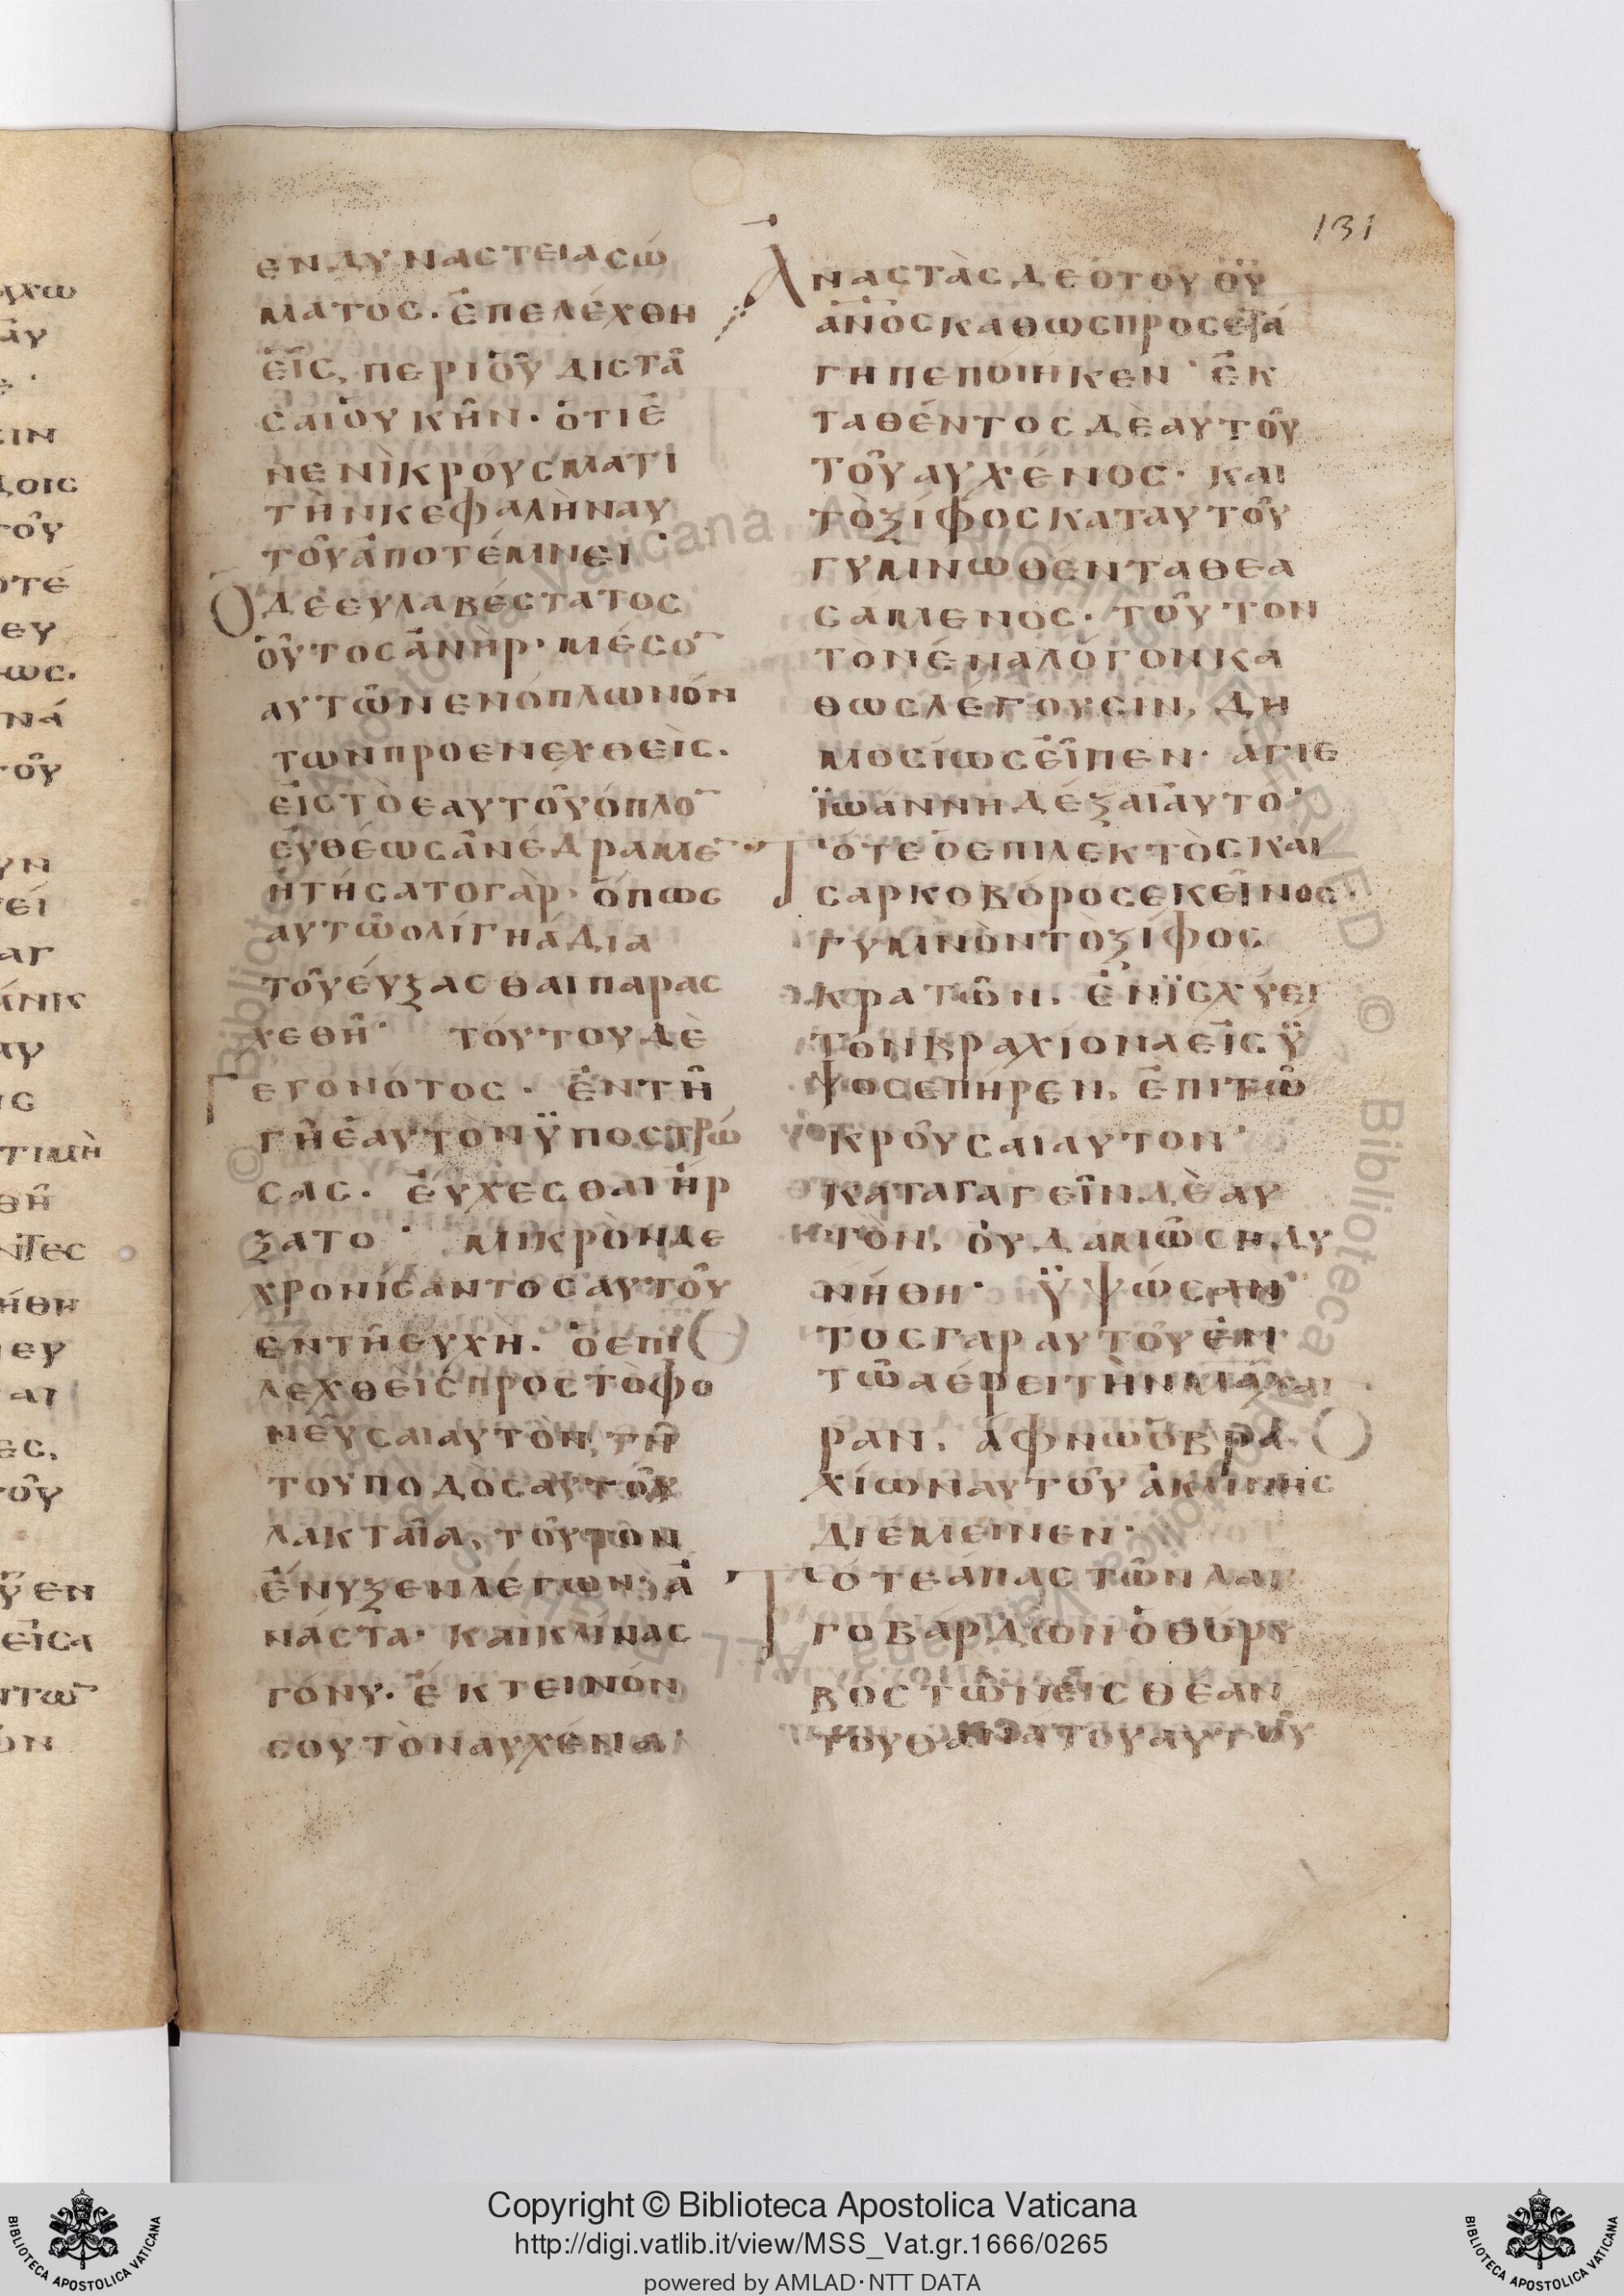 131
ενδυναστειασώ
ματος. ἐπελέχθη
εἷς, περὶοὗ διστά
σαιοὐκῆν· ὅτιἑ
νενὶκρούσματι
τὴνκεφαλὴναυ
τοῦἀποτέμνει·
Ὁδεευλαβέστατος
οὗτοςἀνὴρ· μέσο̄
αυτῶνενόπλωνόν
τωνπροενεχθεὶς.
εἰςτὸεαυτοῦόπλο̄
εὐθέωςἀνέδραμε̄
ητήσατογὰρ· ὅπως
αυτῶολίγηάδια
τοῦεύξασθαιπαρας
χεθῆ· τούτουδὲ
Γεγονότος. ἐντῆ
γῆἑαυτὸνϋποστρώ
σας. ἐύχεσθαιἠρ
ξατο· μικρὸνδε
χρονίσαντοςαυτοῦ
εντῆευχῆ. ὁεπι
λεχθεὶςπρὸςτὸφο
νεῦσαιαυτὸν, τῆ
τουποδὸςαυτοῦ
λακταΐα, τοῦτον
ἔνυξενλέγων· ἀ
νάστα· καικλίνας
γόνυ. ἔκτεινόν
σουτὸναυχένα·
Ἀναστὰςδεὁτουθῡ
ἀνοςκαθωςπροσετά
γηπεποίηκεν· ἐκ
ταθέντοςδὲαυτοῦ
τοῦαυχένος· και
τὸξίφοςκαταυτοῦ
γυμνωθένταθεα
σάμενος· τοῦτον
τὸνέναλόγονκα
θωςλέγουσιν, δη
μοσίωςεἶπεν· αγιε
ϊωάννηδέξαιἀυτο·
Τότεὁεπιλεκτὸςκαι
σαρκοβόροςεκεῖνος·
γυμνὸντὸξίφος
κρατῶν. ἐνϊσχύει
τὸνβραχίοναεἰςϋ
ψοςεπῆρεν, ἐπιτῶ
κροῦσαιαυτον·
καταγαγεῖνδὲαυ
τὸν, οὐδαμῶςηδυ
νήθη· ϋψώσαν
τοςγαραυτοῦἐν
τῶαέρειτὴνμάχαι
ραν, ἄφνωὁβρα
χίωναυτοῦἀκλινὴς
διέμεινεν·
Τότεάπαςτῶνλαγ
γοβάρδωνὁθόρυ
βοςτῶνεἰςθέαν
τουθανάτουαυτοῦ
Copyright © Biblioteca Apostolica Vaticana
http://digi.vatlib.it/view/MSS_Vat.gr.1666/0265
powered by AMLAD·NTT DATA